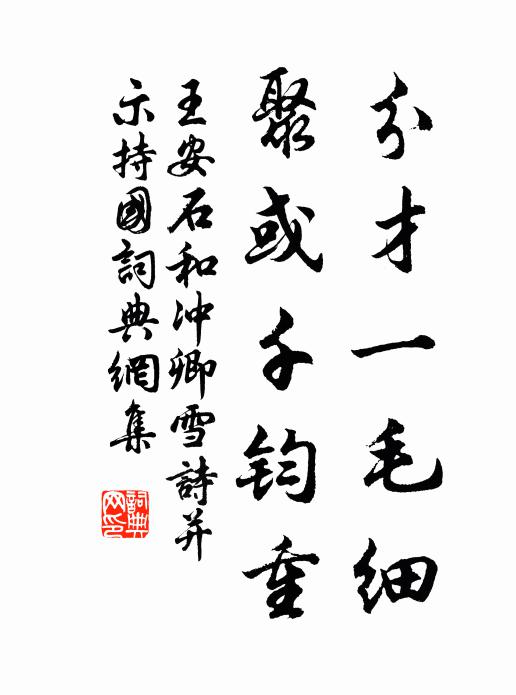 分才一毛细
聚或千钧重
王安石和冲卿雪詩并
示持國詞典網集
詞典
网印